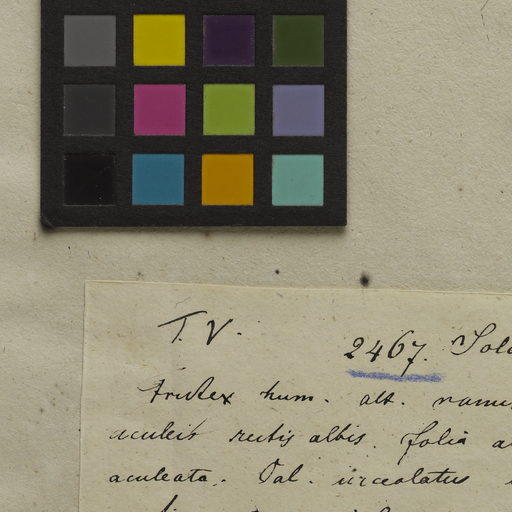 T. V.
2467. Sola
frutex hum. alt. ramu
aculeis rectis albis. folia a
aculeata. Cal. urceolatus